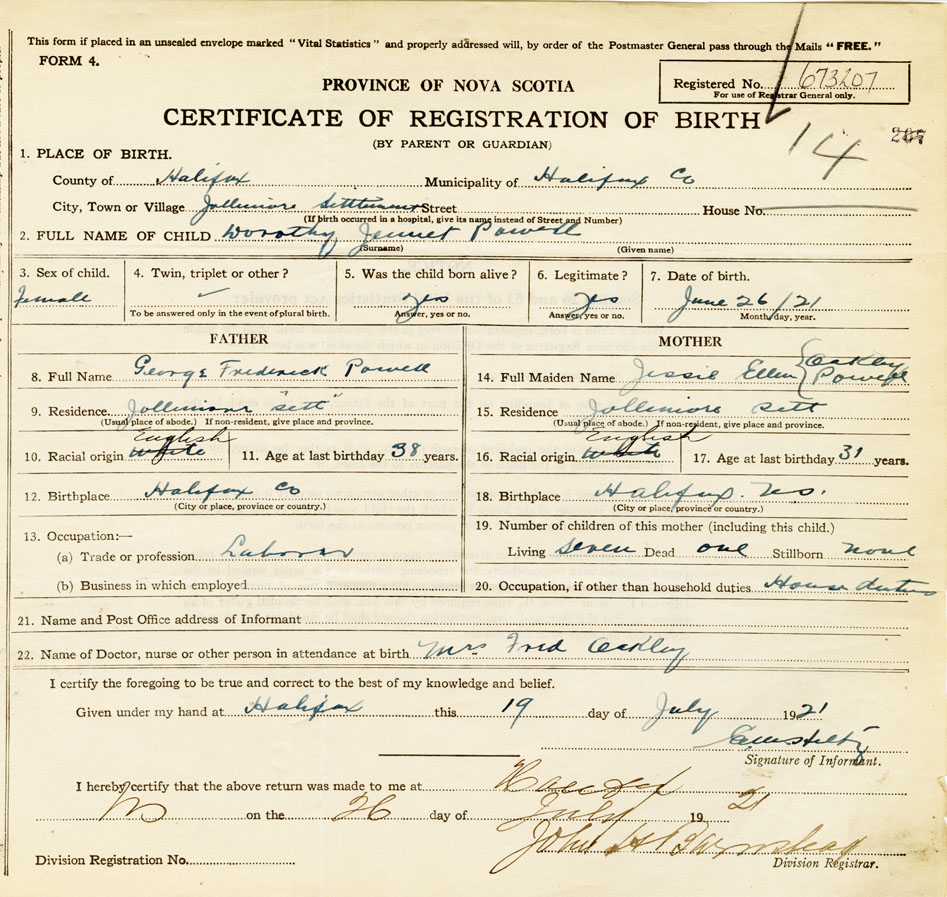 This form if placed in an unsealed envelope marked "Vital Statistics" and properly addressed will, by order of the Postmaster General pass through the Mails "FREE."
FORM 4.
Registered No. 673207
For use of Registrar General only.
PROVINCE OF NOVA SCOTIA
CERTIFICATE OF REGISTRATION OF BIRTH
14
(BY PARENT OR GUARDIAN)
1. PLACE OF BIRTH.
County of Halifax Municipality of Halifax Co
City, Town or Village Jollimore Settlement Street House No.
(If birth occurred in a hospital, give its name instead of Street and Number)
2. FULL NAME OF CHILD Dorothy Jennet Powell
(Surname) (Given name)
3. Sex of child. 4. Twin, triplet or other? 5. Was the child born alive? 6. Legitimate? 7. Date of birth.
female yes yes June 26/21
To be answered only in the event of plural birth. Answer, yes or no. Answer, yes or no. Month, day, year.
FATHER
8. Full Name George Frederick Powell
9. Residence Jollimore "Sett"
(Usual place of abode.) If non-resident, give place and province.
English
10. Racial origin White 11. Age at last birthday 38 years.
12. Birthplace Halifax Co
(City or place, province or country.)
13. Occupation:—
(a) Trade or profession Laborer
(b) Business in which employed
MOTHER
Oakley
14. Full Maiden Name Jessie Ellen Powell
15. Residence Jollimore Sett
(Usual place of abode.) If non-resident, give place and province.
English
16. Racial origin White 17. Age at last birthday 31 years.
18. Birthplace Halifax. N.S.
(City or place, province or country.)
19. Number of children of this mother (including this child.)
Living Seven Dead one Stillborn none
20. Occupation, if other than household duties House duties
21. Name and Post Office address of Informant
22. Name of Doctor, nurse or other person in attendance at birth Mrs Fred Oakley
I certify the foregoing to be true and correct to the best of my knowledge and belief.
Given under my hand at Halifax this 19 day of July 1921
Signature of Informant.
I hereby certify that the above return was made to me at
on the 26 day of July 1921
John H
Division Registration No.
Division Registrar.